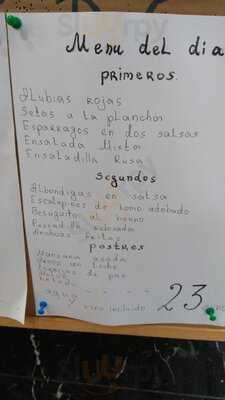 Menu del dia
PRIMEROS.
Alubias rojas
Setas a la plancha
Esparragos en dos salsas
Ensalada Mixta
Ensaladilla Rusa
Segundos
Albondigas en salsa
Escalopines de lomo adobado
Besugito al horno
Pescadilla rebozada
Anchoas fritas
postres
Manzana asada
Arroz con leche
helado
agua
vino incluido 23